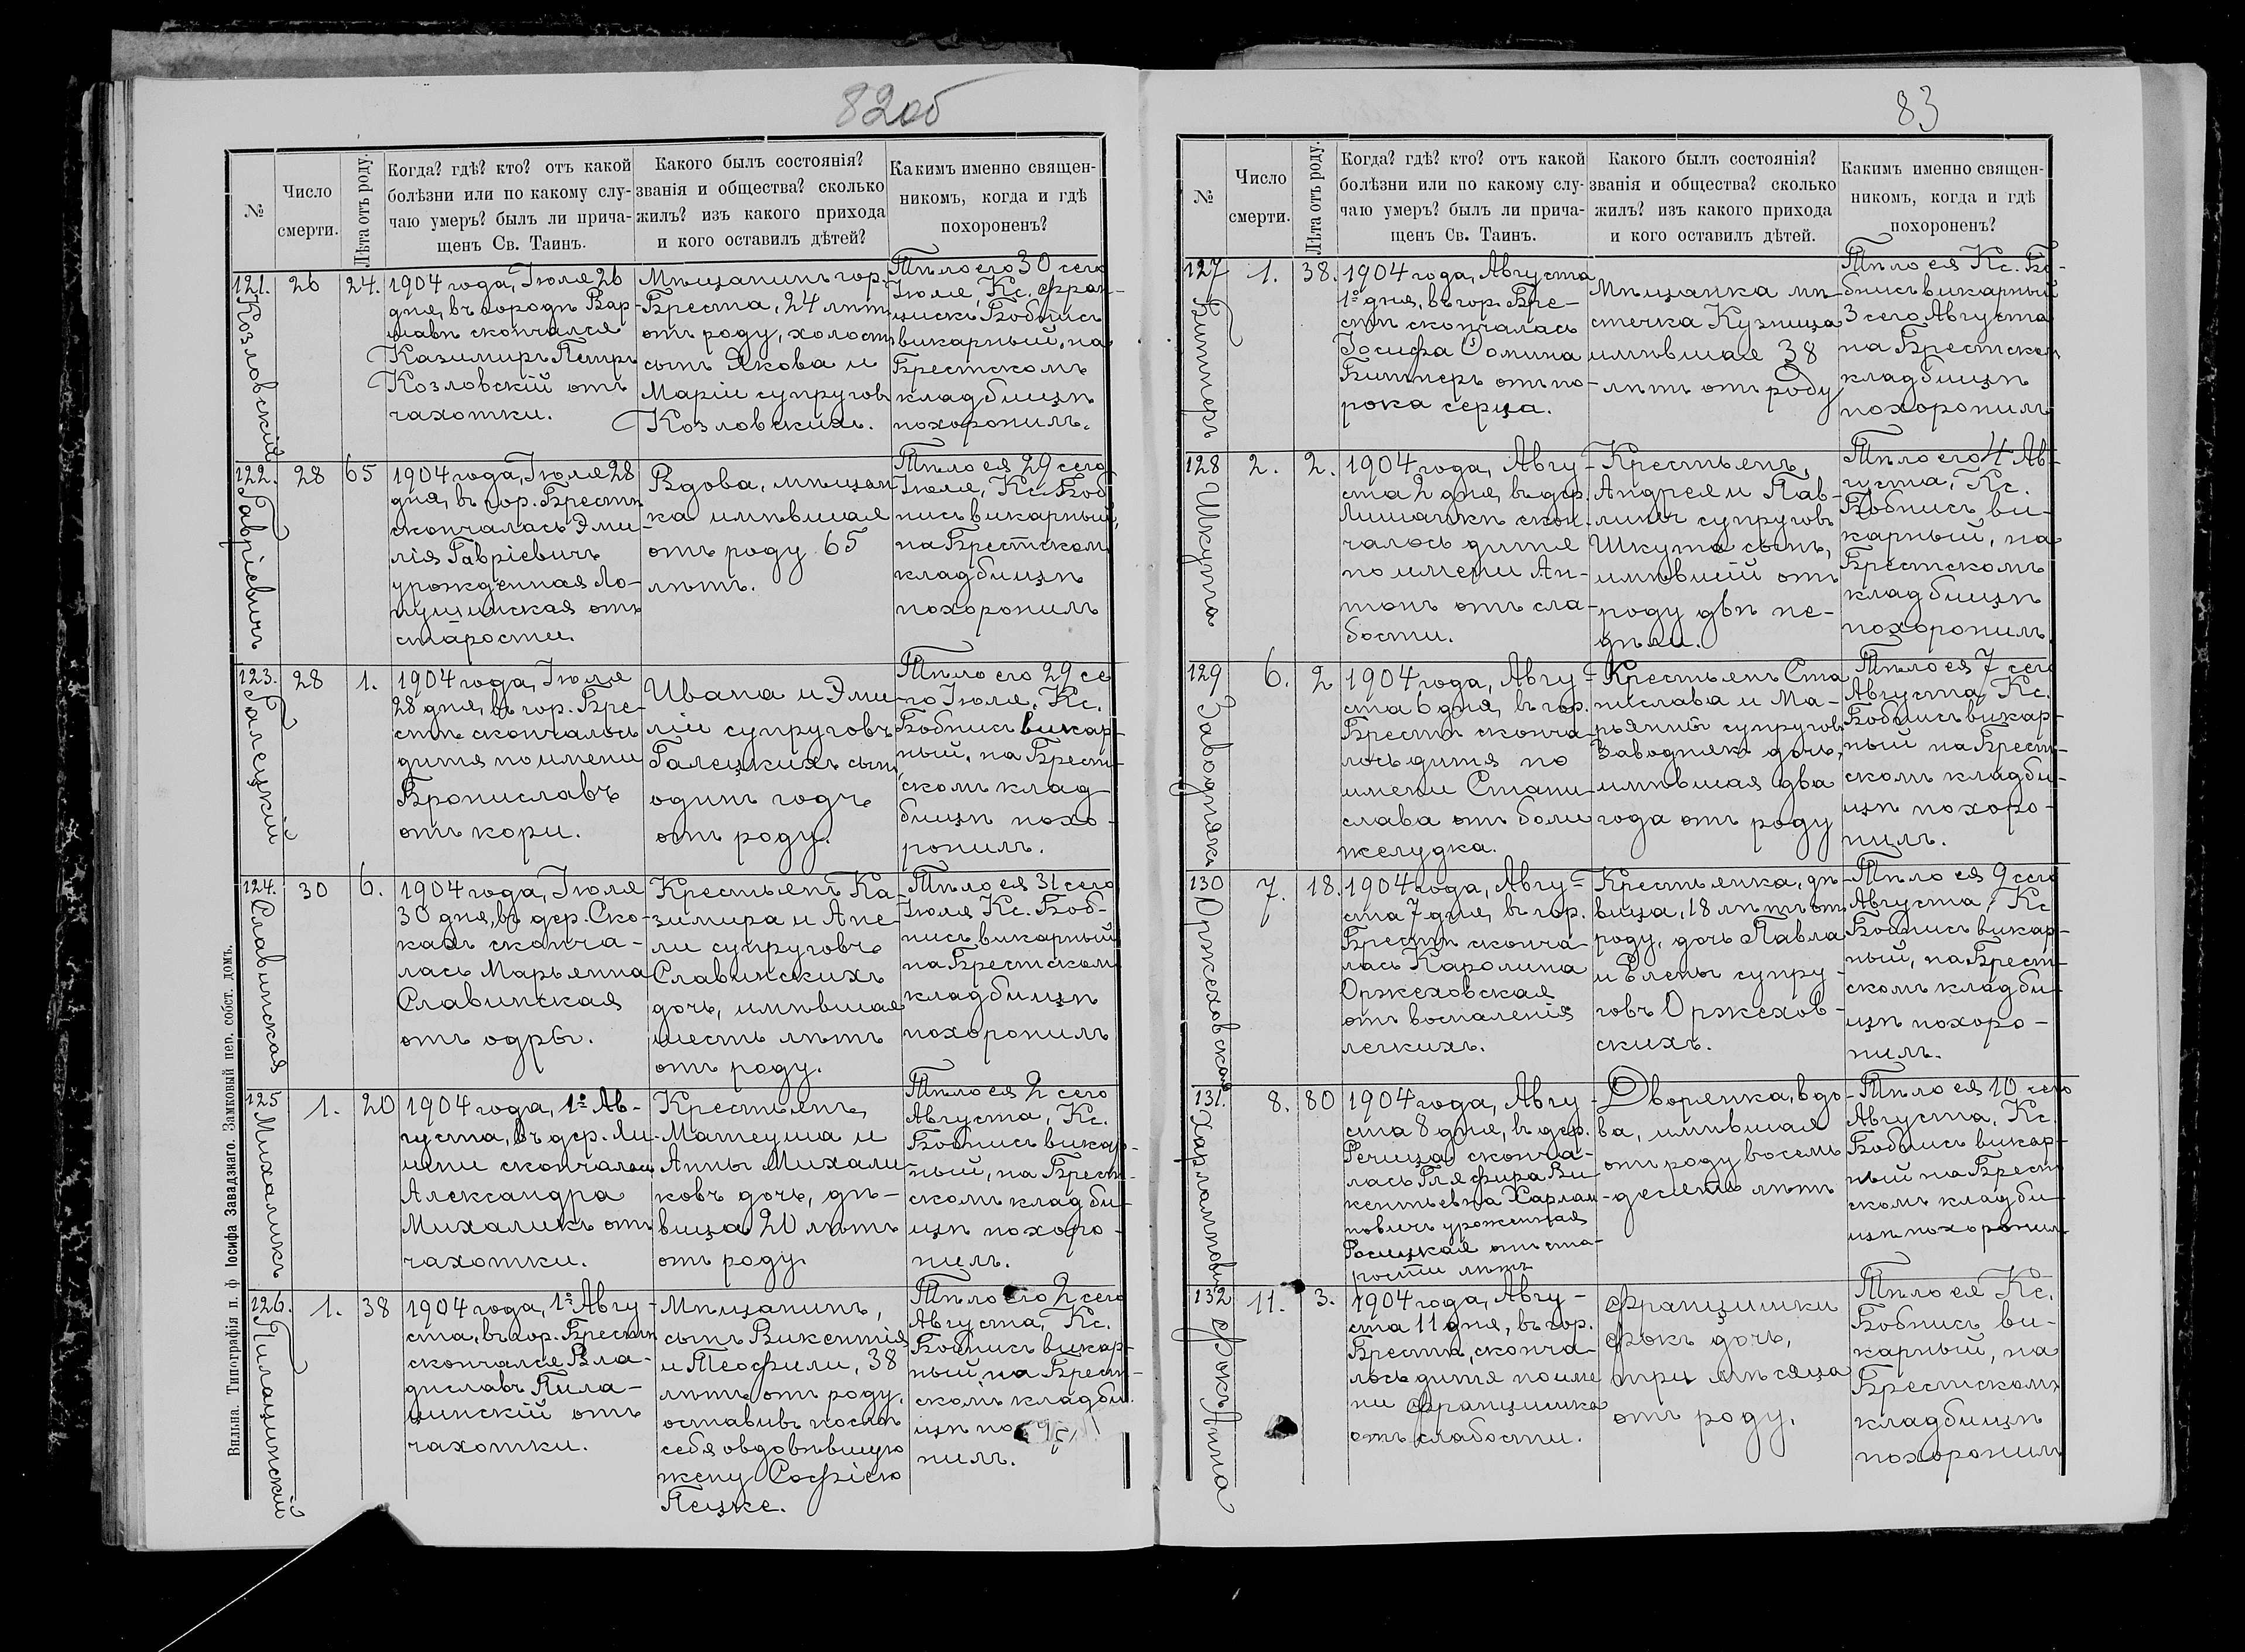 82об
№
Число
смерти.
Лѣта отъ роду.
Когда? гдѣ? кто? отъ какой
болѣзни или по какому слу-
чаю умеръ? былъ ли прича-
щенъ Св. Таинъ.
Какого былъ состоянія?
званія и общества? сколько
жилъ? изъ какого прихода
и кого оставилъ дѣтей?
Какимъ именно священ-
никомъ, когда и гдѣ
похороненъ?
121.
Козловскій
26
24.
1904 года, Іюля 26
дня, въ городѣ Вар-
шавѣ скончался
Казимиръ Петръ
Козловскій отъ
чахотки.
Мѣщанинъ гор.
Бреста, 24 лѣтъ
отъ роду, холостъ,
сынъ Якова и
Маріи супруговъ
Козловскихъ.
Тѣло его 30 сего
Іюля, Кс. Фран-
цискъ Бобнисъ
викарный, на
Брестскомъ
кладбищѣ
похоронилъ.
122.
Гавріевичъ
28
65
1904 года, Іюля 28
дня, въ гор. Брестѣ
скончалась Эми-
лія Гавріевичъ
урожденная Ло-
пушинская отъ
старости.
Вдова, мѣщан-
ка имѣвшая
отъ роду 65
лѣтъ.
Тѣло ея 29 сего
Іюля, Кс. Боб-
нисъ викарный,
на Брестскомъ
кладбищѣ
похоронилъ
123.
Галецкій
28
1.
1904 года, Іюля
28 дня, въ гор. Бре-
стѣ скончалось
дитя по имени
Брониславъ
отъ кори.
Ивана и Эми-
ліи супруговъ
Галецкихъ сынъ,
одинъ годъ
отъ роду.
Тѣло его 29 се-
го Іюля, Кс.
Бобнисъ викар-
ный, на Брест-
скомъ клад-
бищѣ похо-
ронилъ.
124.
Славинская
30
6.
1904 года, Іюля
30 дня, въ дер. Ско-
кахъ сконча-
лась Марьянна
Славинская
отъ одры.
Крестьянъ Ка-
зимира и Ане-
ли супруговъ
Славинскихъ
дочь, имѣвшая
шесть лѣтъ
отъ роду.
Тѣло ея 31 сего
Іюля Кс. Боб-
нисъ викарный
на Брестскомъ
кладбищѣ
похоронилъ
125
Михаликъ
1.
20
1904 года, 1го Ав-
густа, въ дер. Ли-
шни скончалась
Александра
Михаликъ отъ
чахотки.
Крестьянъ,
Матеуша и
Анны Михали-
ковъ дочь, дѣ-
вица 20 лѣтъ
отъ роду
Тѣло ея 2 сего
Августа, Кс.
Бобнисъ викар-
ный, на Брест-
скомъ кладби-
щѣ похоро-
нилъ.
126.
Пилацинскій
1.
38
1904 года, 1го Авгу-
ста, въ гор. Брестѣ
скончался Вла-
диславъ Пила-
цинскій отъ
чахотки.
Мѣщанинъ,
сынъ Викентія
и Теофили, 38
лѣтъ отъ роду,
оставивъ послѣ
себя овдовѣвшую
жену Софію
Пецке.
Тѣло его 2 сего
Августа, Кс.
Бобнисъ викар-
ный на Брест-
скомъ кладби-
щѣ по
нилъ.
Вильна. Типографія п. ф. Іосифа Завадзкаго. Замковый пер. собст. домъ.
83
№
Число
смерти.
Лѣта отъ роду.
Когда? гдѣ? кто? отъ какой
болѣзни или по какому слу-
чаю умеръ? былъ ли прича-
щенъ Св. Таинъ.
Какого былъ состоянія?
званія и общества? сколько
жилъ? изъ какого прихода
и кого оставилъ дѣтей.
Какимъ именно священ-
никомъ, когда и гдѣ
похороненъ?
127
Биттеръ
1.
38.
1904 года, Августа
1го дня, въ гор. Бре-
стѣ скончалась
Іосифа Домина
Биттеръ отъ по-
рока серца.
Мѣщанка мѣ-
стечка Кузница
имѣвшая 38
лѣтъ отъ роду
Тѣло ея Кс. Бо-
бнисъ викарный
3 сего Августа
на Брестскомъ
кладбищѣ
похоронилъ
128
Шкута
2.
2.
1904 года, Авгу-
ста 2 дня, въ дер.
скон-
чалось дитя
по имени Ан-
тонъ отъ сла-
бости.
Крестьянъ,
Андрея и Пав-
лины супруговъ
Шкута сынъ,
имѣвшій отъ
роду двѣ не-
дѣли.
Тѣло его 4 Ав-
густа, Кс.
Бобнисъ ви-
карный, на
Брестскомъ
кладбищѣ
похоронилъ.
129
Заводнякъ
6.
2
1904 года, Авгу-
ста 6 дня, въ гор.
Брестѣ сконча-
лось дитя по
имени Стани-
слава отъ боли
желудка.
Крестьянъ Ста-
нислава и Ма-
рьянны супруговъ
Заводнякъ дочь,
имѣвшая два
года отъ роду
Тѣло ея 7 сего
Августа, Кс.
Бобнисъ викар-
ный на Брест-
скомъ кладби-
щѣ похоро-
нилъ.
130
Оржеховская
7.
18.
1904 года, Авгу-
ста 7 дня, въ гор.
Брестѣ сконча-
лась Каролина
Оржеховская
отъ воспаленія
легкихъ.
Крестьянка, дѣ-
вица, 18 лѣтъ отъ
роду, дочь Павла
и Елены супру-
говъ Оржехов-
скихъ.
Тѣло ея 9 сего
Августа, Кс.
Бобнисъ викар-
ный, на Брест-
скомъ кладби-
щѣ похоро-
нилъ.
131.
Харлампповичъ
8.
80
1904 года, Авгу-
ста 8 дня, въ дер.
Речица сконча-
лась Гляфира Ви-
кентьевна Харлам-
повичъ урожденная
Росицкая отъ ста-
рости лѣтъ
Дворянка, вдо-
ва, имѣвшая
отъ роду восемь-
десятъ лѣтъ
Тѣло ея 10 сего
Августа, Кс.
Бобнисъ викар-
ный на Брест-
скомъ кладби-
щѣ похоронилъ
132
Фокъ Анна
11.
3.
1904 года, Авгу-
ста 11 дня, въ гор.
Брестѣ, сконча-
лось дитя по име-
ни Францишка
отъ слабости.
Францишки
Фокъ дочь,
три мѣсяца
отъ роду.
Тѣло ея Кс.
Бобнисъ ви-
карный, на
Брестскомъ
кладбищѣ
похоронилъ